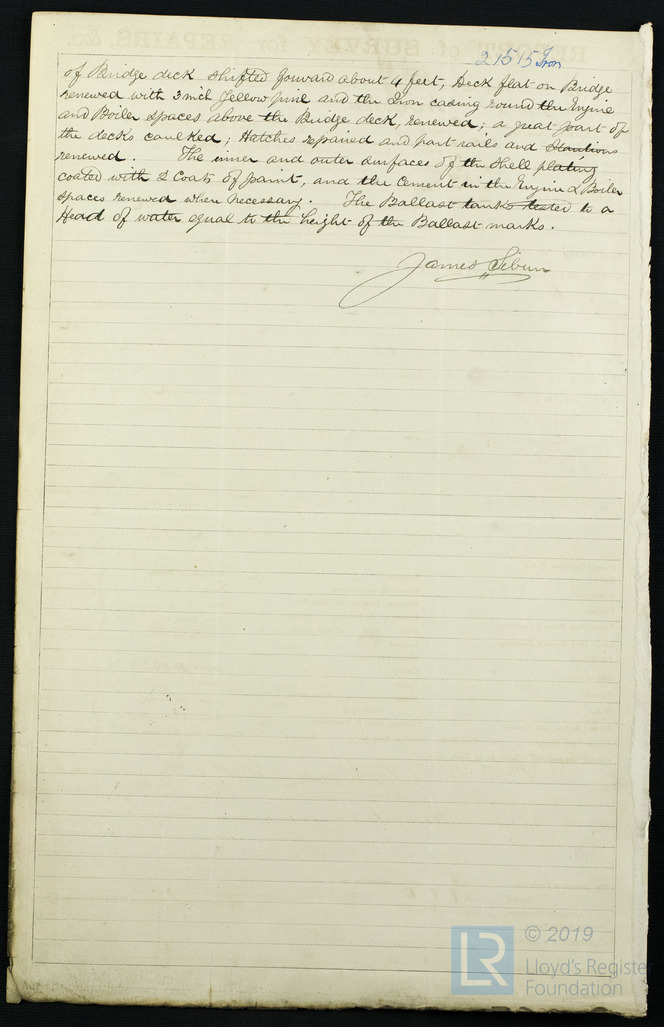 21515 Iron
of Bridge deck shifted forward about 4 feet, Deck flat on Bridge
renewed with 3 inch Yellow pine and the Iron casing round the Engine
and Boiler spaces above the Bridge deck, renewed; a great part of
the decks caulked; Hatches repaired and part rails and Stantions
renewed. The inner and outer surfaces of the Shell plating
coated with 2 Coats of paint, and the Cement in the Engine & Boiler
spaces renewed where necessary. The Ballast tanks tested to a
Head of water equal to the height of the Ballast marks.
James Sibun
© 2019
LR
Lloyd's Register
Foundation